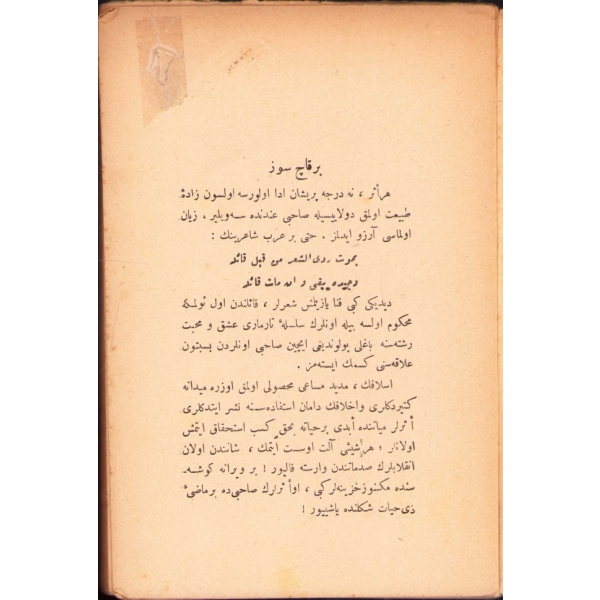 برقاچ سوز
هرأثر ، نه درجه پریشان ادا اولورسه اولسون زادۀ
طبیعت اولمق دولاییسیله صاحبی عندنده سه‌ویلیر ، زیان
اولماسی آرزو ایدلمز . حتی بر عرب شاعرینك :
یموت ردی الشعر من قبل قائله
وجیده یبقی و ان مات قائله
دیدیکی کبی فنا یازیلمش شعرلر ، قائلندن اول ئولمکه
محکوم اولسه بیله اونلرك سلسلۀ تارماری عشق و محبت
رشته‌سنه باغلی بولوندیغی ایچین صاحبی اونلردن بسبتون
علاقه‌سنی کسمك ایسته‌مز .
اسلافك ، مدید مساعی محصولی اولمق اوزره میدانه
کتیردکلری و اخلافك دامان استفاده‌سنه نشر ایتدکلری
أثرلر میاننده أبدی برحیاته بحق کسب استحقاق ایتمش
اولانلر ؛ هرشیئی آلت اوست ایتمك ، شانندن اولان
انقلابلرك صدماتندن وارسته قالیور ! بر ویرانه کوشه‌ـ
سنده مکنوز خزینه‌لر کبی ، او أثرلرك صاحبی ده برماضیٔ
ذی حیات شکلنده یاشییور !